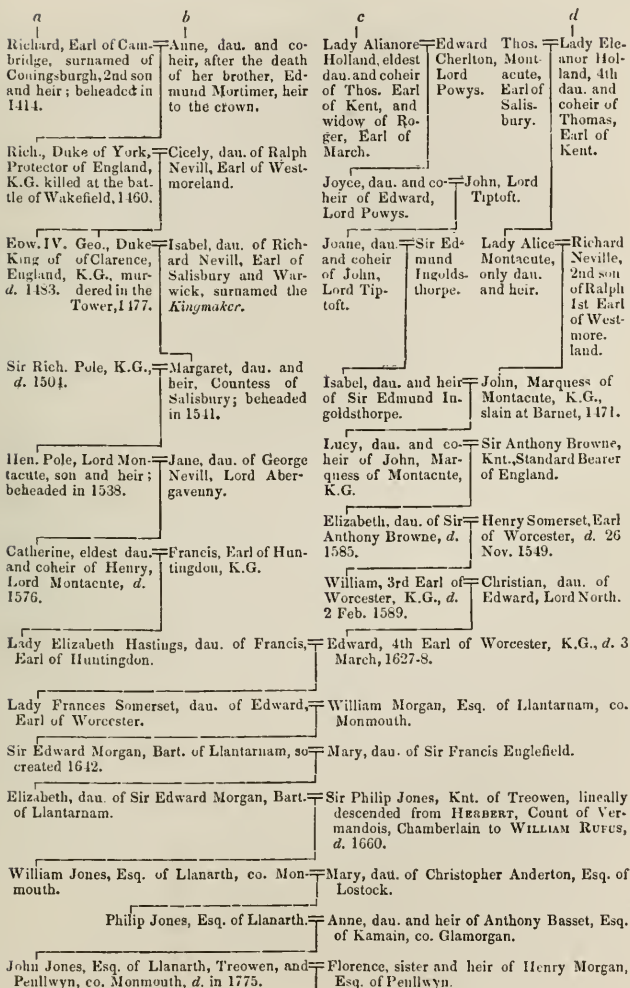 a
b
c
d
Richard, Earl of Cam-
bridge, surnamed of
Coningsburgh, 2nd son
and heir; beheaded in
1414.
Anne, dau. and co-
heir, after the death
of her brother, Ed-
mund Mortimer, heir
to the crown.
Lady Alianore
Holland, eldest
dau. and coheir
of Thos. Earl
of Kent, and
widow of Ro-
ger, Earl of
March.
Edward
Cherlton,
Lord
Powys.
Thos.
Mont-
acute,
Earl of
Salis-
bury.
Lady Ele-
anor Hol-
land, 4th
dau. and
coheir of
Thomas,
Earl of
Kent.
Rich., Duke of York,
Protector of England,
K.G. killed at the bat-
tle of Wakefield, 1460.
Cicely, dau. of Ralph
Nevill, Earl of West-
moreland.
Joyce, dau. and co-
heir of Edward,
Lord Powys.
John, Lord
Tiptoft.
Edw. IV.
King of
England,
d. 1483.
Geo., Duke
of Clarence,
K.G., mur-
dered in the
Tower, 1477.
Isabel, dau. of Rich-
ard Nevill, Earl of
Salisbury and War-
wick, surnamed the
Kingmaker.
Joane, dau.
and coheir
of John,
Lord Tip-
toft.
Sir Ed-
mund
Ingolds-
thorpe.
Lady Alice
Montacute,
only dau.
and heir.
Richard
Neville,
2nd son
of Ralph
1st Earl
of West-
more.
land.
Sir Rich. Pole, K.G.,
d. 1504.
Margaret, dau. and
heir, Countess of
Salisbury; beheaded
in 1541.
Isabel, dau. and heir
of Sir Edmund In-
goldsthorpe.
John, Marquess of
Montacute, K.G.,
slain at Barnet, 1471.
Hen. Pole, Lord Mon-
tacute, son and heir;
beheaded in 1538.
Jane, dau. of George
Nevill, Lord Aber-
gavenny.
Lucy, dau. and co-
heir of John, Mar-
quess of Montacute,
K.G.
Sir Anthony Browne,
Knt., Standard Bearer
of England.
Elizabeth, dau. of Sir
Anthony Browne, d.
1585.
Henry Somerset, Earl
of Worcester, d. 26
Nov. 1549.
Catherine, eldest dau.
and coheir of Henry,
Lord Montacute, d.
1576.
Francis, Earl of Hun-
tingdon, K.G.
William, 3rd Earl of
Worcester, K.G., d.
2 Feb. 1589.
Christian, dau. of
Edward, Lord North.
Lady Elizabeth Hastings, dau. of Francis,
Earl of Huntingdon.
Edward, 4th Earl of Worcester, K.G., d. 3
March, 1627-8.
Lady Frances Somerset, dau. of Edward,
Earl of Worcester.
William Morgan, Esq. of Llantarnam, co.
Monmouth.
Sir Edward Morgan, Bart. of Llantarnam, so
created 1642.
Mary, dau. of Sir Francis Englefield.
Elizabeth, dau. of Sir Edward Morgan, Bart.
of Llantarnam.
Sir Philip Jones, Knt. of Treowen, lineally
descended from HERBERT, Count of Ver-
mandois, Chamberlain to WILLIAM RUFUS,
d. 1660.
William Jones, Esq. of Llanarth, co. Mon-
mouth.
Mary, dau. of Christopher Anderton, Esq. of
Lostock.
Philip Jones, Esq. of Llanarth.
Anne, dau. and heir of Anthony Basset, Esq.
of Kamain, co. Glamorgan.
John Jones, Esq. of Llanarth, Treowen, and
Penllwyn, co. Monmouth, d. in 1775.
Florence, sister and heir of Henry Morgan,
Esq. of Penllwyn.